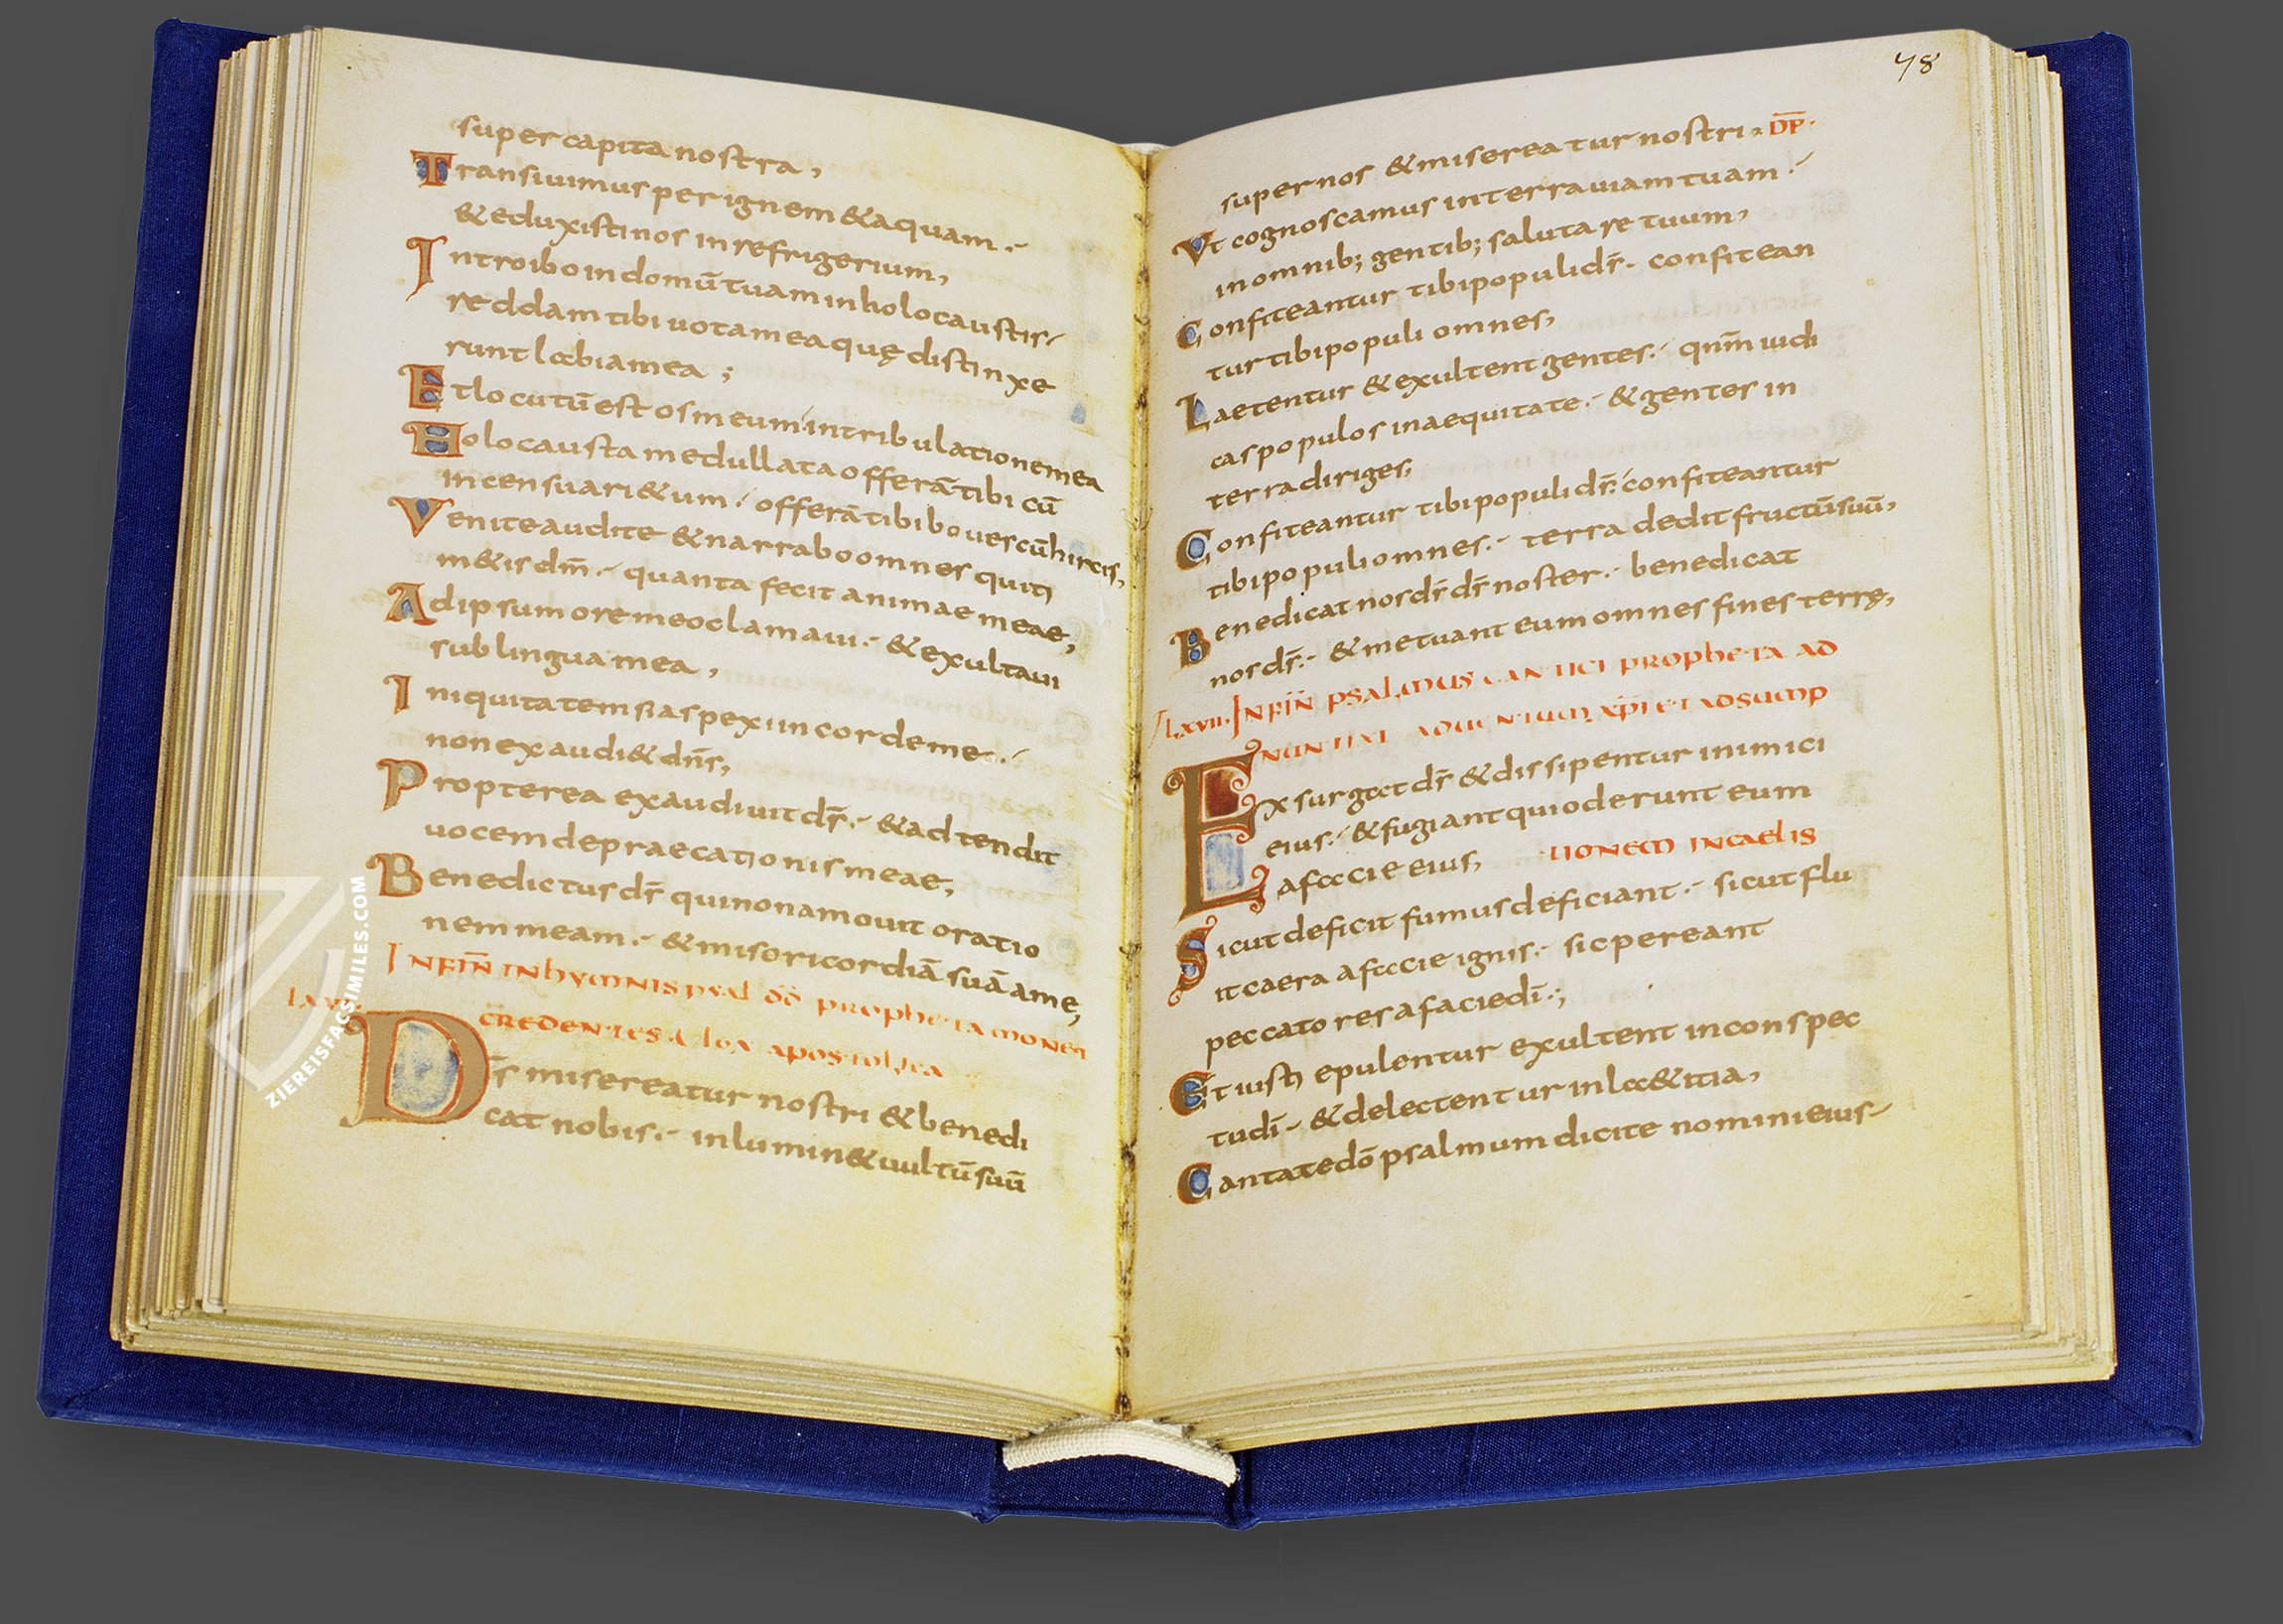 super capita nostra,
Transiuimus per ignem & aquam.
& eduxisti nos in refrigerium,
Introibo in domū tuam in holocaustis
reddam tibi uota mea quę distinxe
runt labia mea;
Et locutū est os meum in tribulatione mea
Holocausta medullata offerā tibi cū
incensu ari&um. offerā tibi boues cū hircis,
Venite audite & narrabo omnes qui ti
m&is dm̄. quanta fecit animae meae,
Ad ipsum ore meo clamaui. & exultaui
sub lingua mea,
Iniquitatem si aspexi in corde meo.
non exaudi& dn̄s,
Propterea exaudiuit ds̄. & adtendit
uocem depraecationis meae,
Benedictus ds̄ qui non amouit oratio
nem meam. & misoricordiā suā a me,
IN FIN̄ IN hymnis psal dd̄ propheta monet
credentes apostolica
Ds̄ misereatur nostri & benedi
cat nobis. inlumin& uultū suū
78
super nos & misereatur nostri. DP̄.
Vt cognoscamus in terra uiam tuam.
in omnib; gentib; salutare tuum,
Confiteantur tibi populi ds̄. confitean
tur tibi populi omnes,
Laetentur & exultent gentes. qnm̄ iudi
cas populos in aequitate. & gentes in
terra diriges,
Confiteantur tibi populi ds̄. confiteantur
tibi populi omnes. terra dedit fructū suū,
Benedicat nos ds̄ ds̄ noster. benedicat
nos ds̄. & metuant eum omnes fines terrę,
LXVII. IN FIN̄ psalmus cantici propheta ad
nuntiat aduentum xp̄i et adsump
Exsurgat ds̄ & dissipentur inimici
eius. & fugiant qui oderunt eum
a facie eius, tionem in caelis
Sicut deficit fumus deficiant. sicut flu
it caera a facie ignis. sic pereant
peccatores a facie dī.;
Et iusti epulentur exultent in conspec
tu dī & delectentur in la&itia,
Cantate dō psalmum dicite nomini eius
ZIEREISFACSIMILES.COM